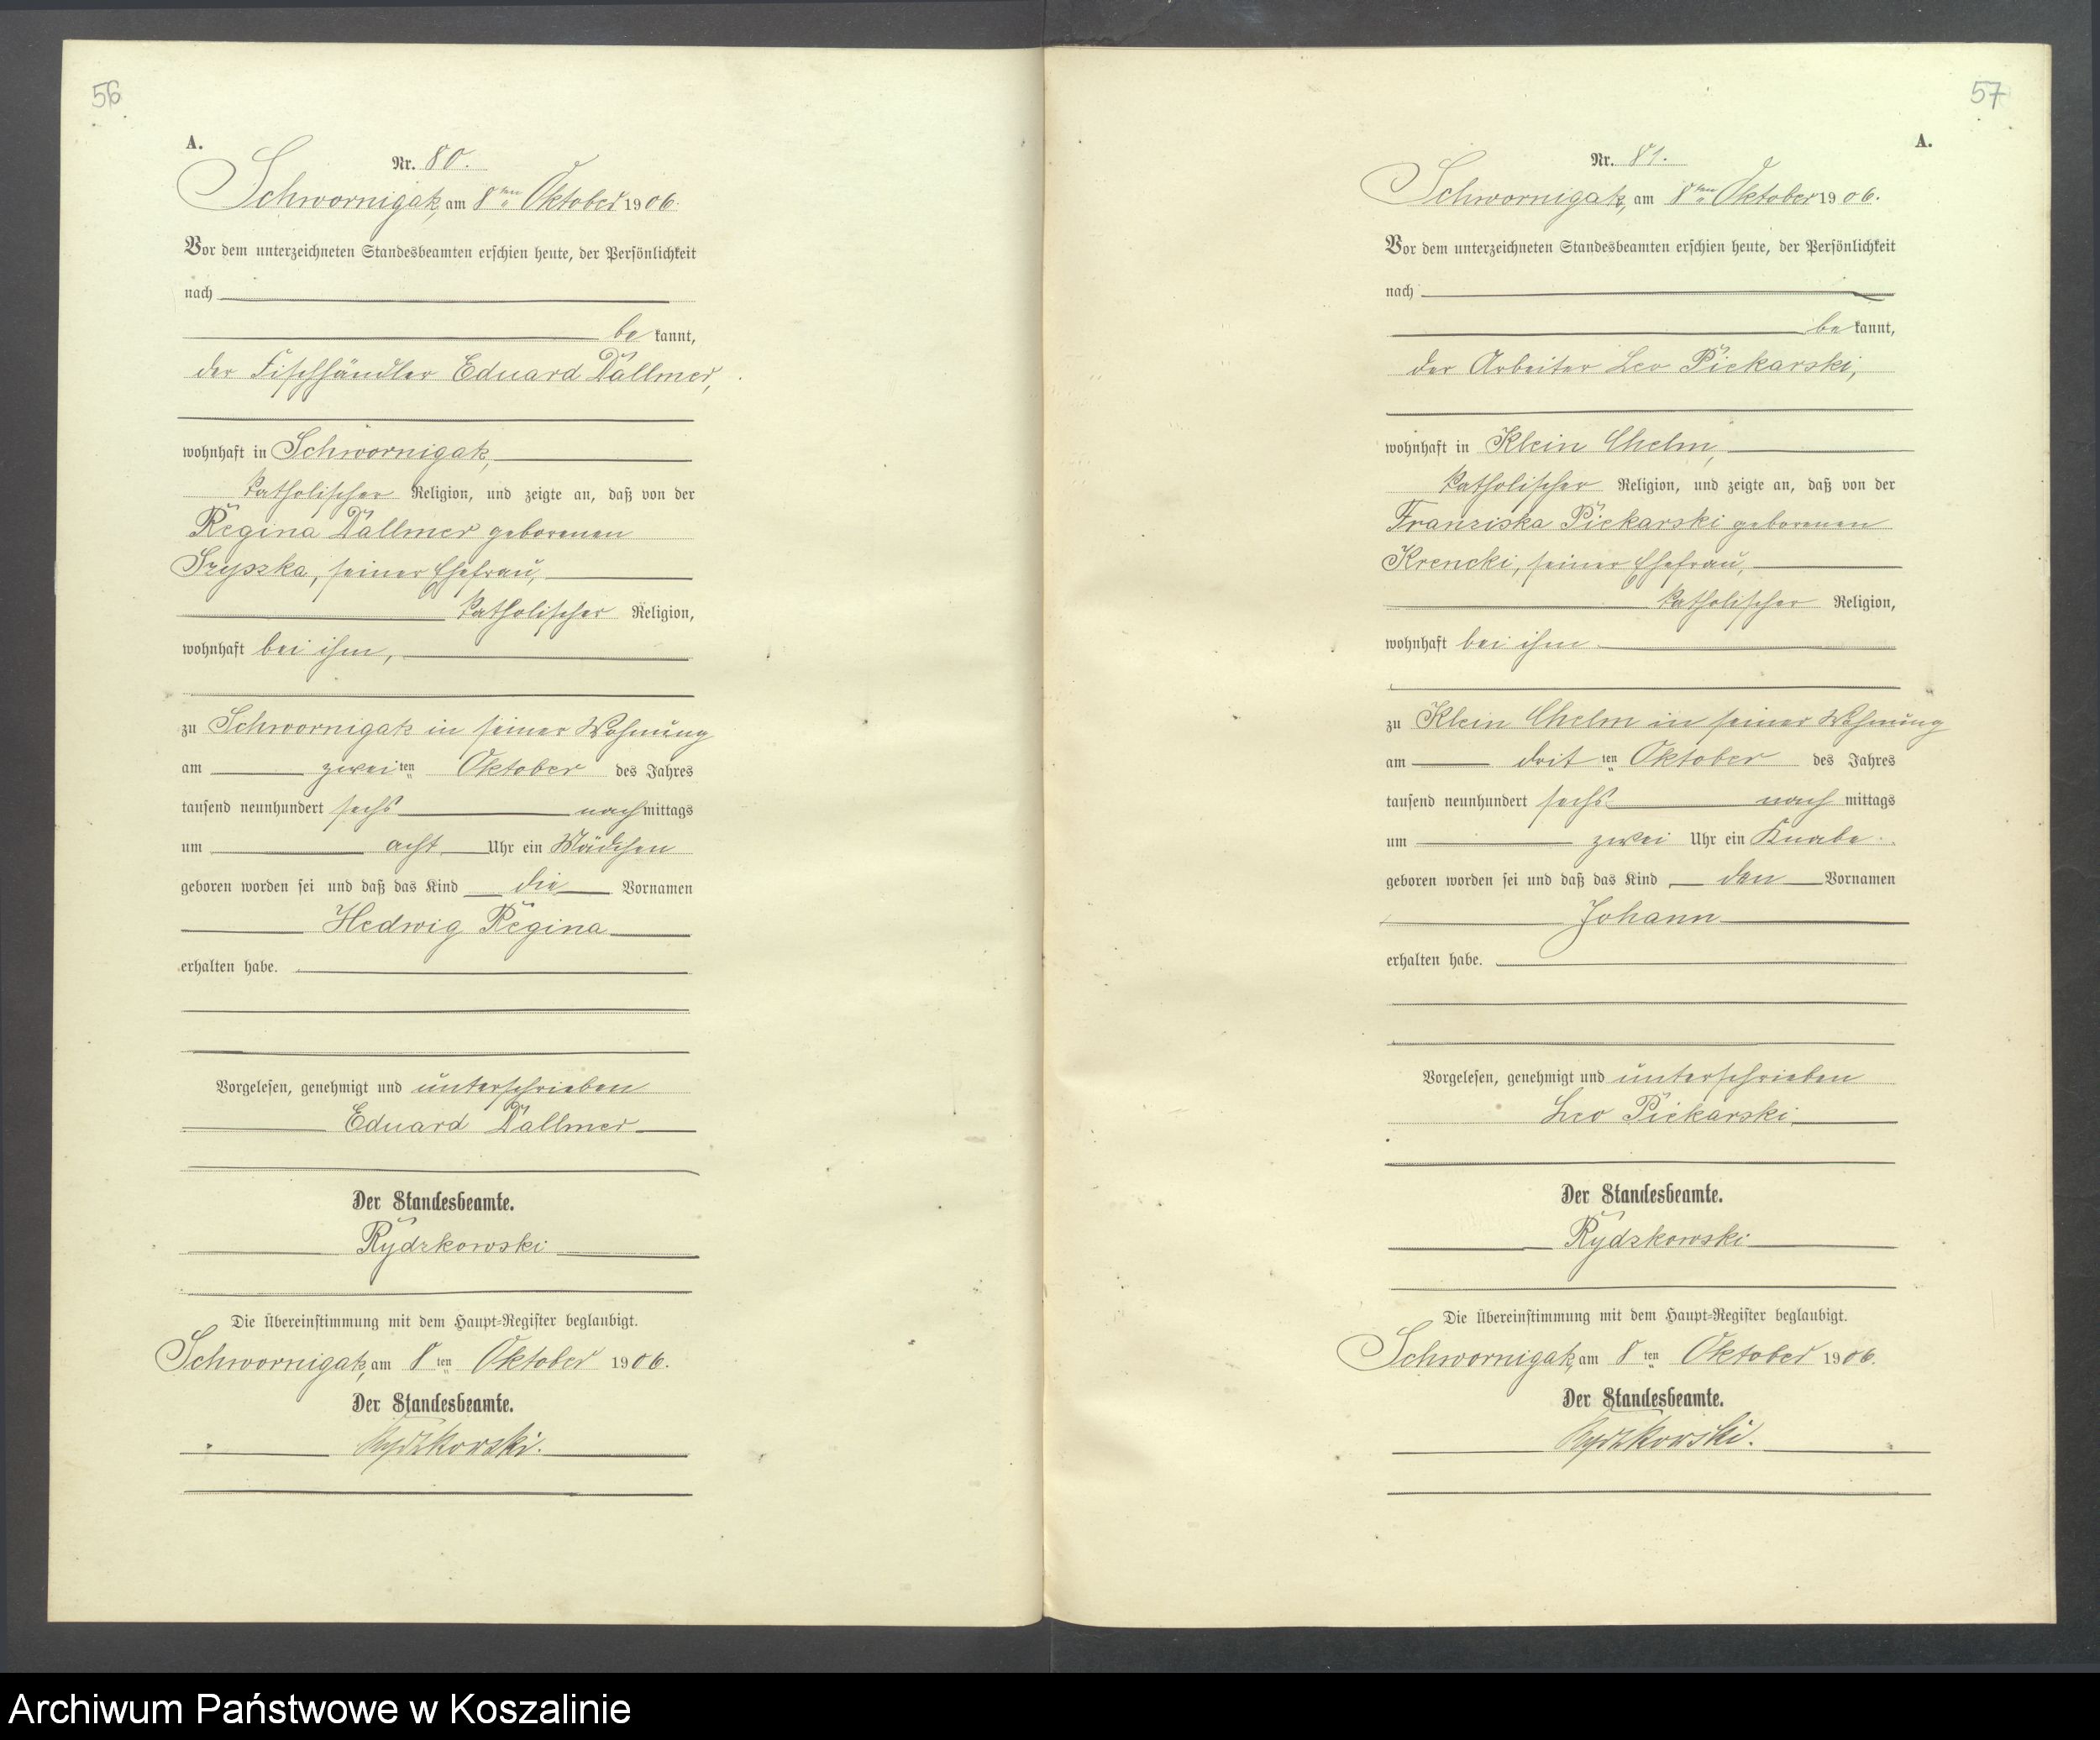 56
A.
Nr. 80.
Schwornigatz, am 8ten Oktober 1906.
Vor dem unterzeichneten Standesbeamten erschien heute, der Persönlichkeit
nach
be kannt,
der Fischhändler Eduard Dallmer,
wohnhaft in Schwornigatz,
katholischer Religion, und zeigte an, daß von der
Regina Dallmer geborenen
Szyszka, seiner Ehefrau,
katholischer Religion,
wohnhaft bei ihm,
zu Schwornigatz in seiner Wohnung
am zweiten Oktober des Jahres
tausend neunhundert sechs nach mittags
um acht Uhr ein Mädchen
geboren worden sei und daß das Kind die Vornamen
Hedwig Regina
erhalten habe.
Vorgelesen, genehmigt und unterschrieben
Eduard Dallmer
Der Standesbeamte.
Rydzkowski
Die Übereinstimmung mit dem Haupt-Register beglaubigt.
Schwornigatz, am 8ten Oktober 1906.
Der Standesbeamte.
Rydzkowski.
57
A.
Nr. 81.
Schwornigatz, am 8ten Oktober 1906.
Vor dem unterzeichneten Standesbeamten erschien heute, der Persönlichkeit
nach
be kannt,
der Arbeiter Leo Piekarski,
wohnhaft in Klein Chelm,
katholischer Religion, und zeigte an, daß von der
Franziska Piekarski geborenen
Krencki, seiner Ehefrau,
katholischer Religion,
wohnhaft bei ihm
zu Klein Chelm in seiner Wohnung
am dritten Oktober des Jahres
tausend neunhundert sechs nach mittags
um zwei Uhr ein Knabe
geboren worden sei und daß das Kind den Vornamen
Johann
erhalten habe.
Vorgelesen, genehmigt und unterschrieben
Leo Piekarski
Der Standesbeamte.
Rydzkowski
Die Übereinstimmung mit dem Haupt-Register beglaubigt.
Schwornigatz, am 8ten Oktober 1906.
Der Standesbeamte.
Rydzkowski.
Archiwum Państwowe w Koszalinie